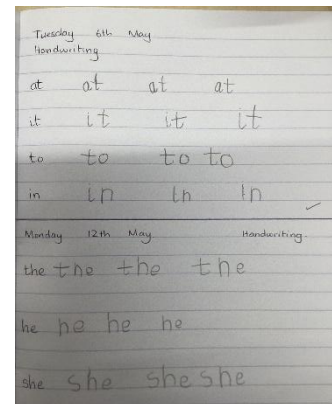 Tuesday 6th May
Handwriting
at at at at
it it it it
to to to to
in in in in
Monday 12th May Handwriting.
the the the the
he he he he
she she she she